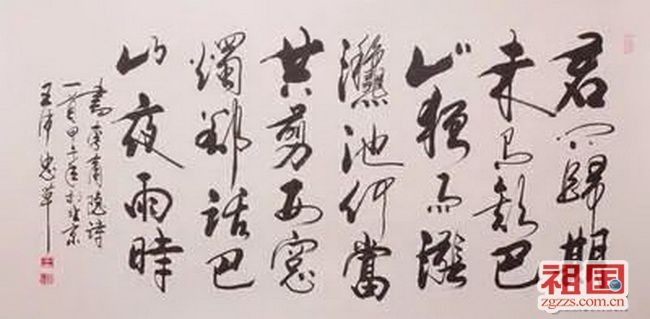 君问歸期
未有期巴
山夜雨漲
秋池何當
共剪西窗
燭却話巴
山夜雨時
書李商隱詩
一首甲午年於北京
王忠草
祖国
zgzzs.com.cn